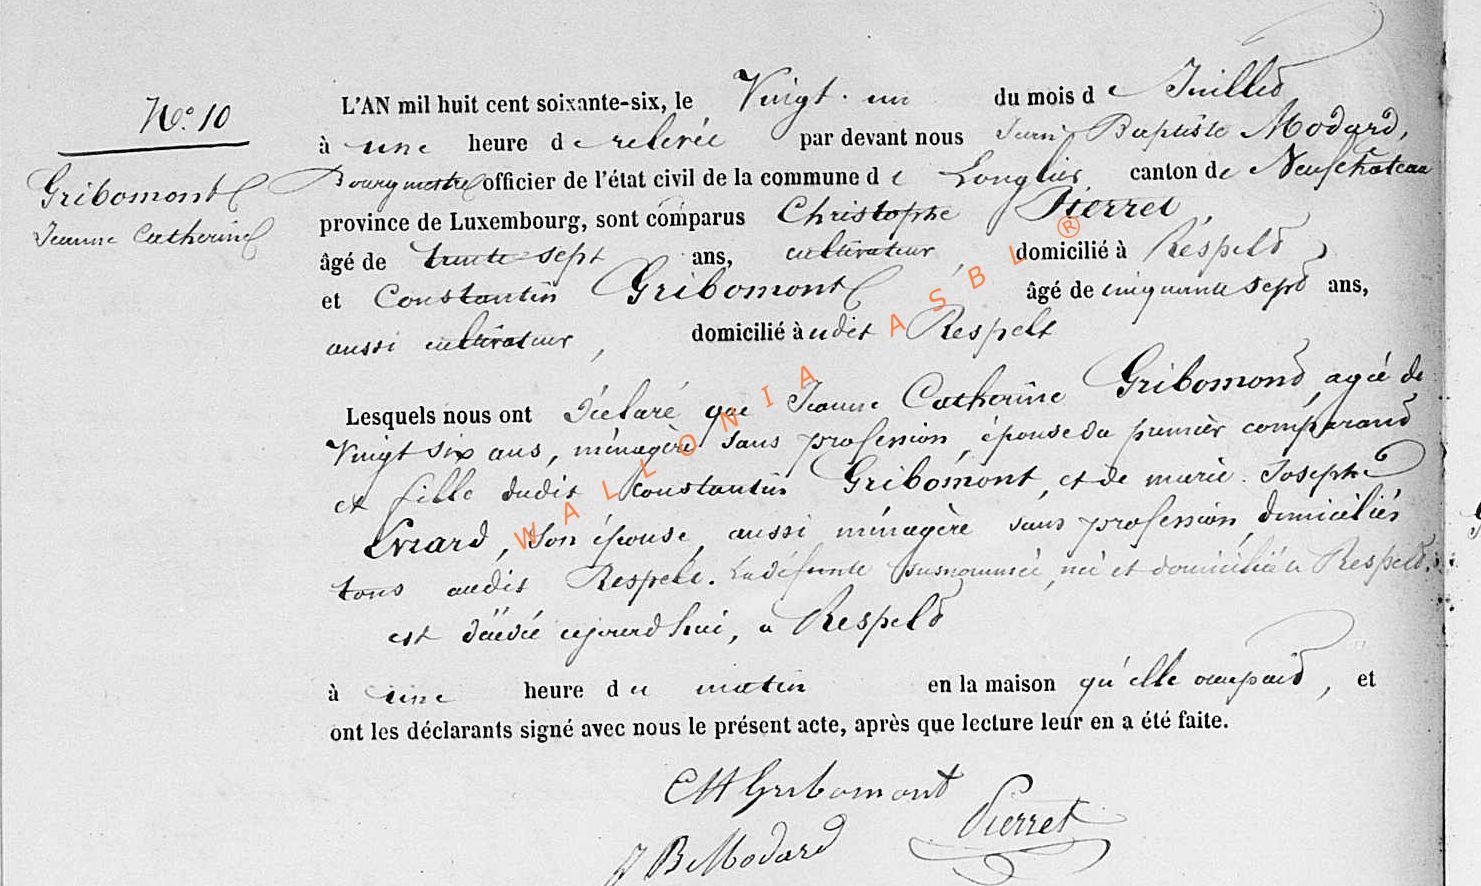 N° 10
Gribomont
Jeanne Catherine
L'AN mil huit cent soixante-six, le Vingt-un du mois de Juillet
à une heure de relevée par devant nous Jean Baptiste Modard,
Bourgmestre officier de l'état civil de la commune de Longlier, canton de Neufchateau
province de Luxembourg, sont comparus Christophe Pierret,
âgé de trente sept ans, cultivateur, domicilié à Respelt,
et Constantin Gribomont âgé de cinquante sept ans,
aussi cultivateur, domicilié à udit Respelt
Lesquels nous ont déclaré que Jeanne Catherine Gribomont, agée de
Vingt six ans, ménagère sans profession, épouse du premier comparant
et fille dudit Constantin Gribomont, et de marie Josephe
Evrard, son épouse, aussi ménagère sans profession, domiciliés
tous audit Respelt. La défunte susnommée, née et domiciliée à Respelt,
est décédée aujourd'hui, a Respelt
à une heure du matin en la maison qu'elle occupait, et
ont les déclarants signé avec nous le présent acte, après que lecture leur en a été faite.
Gribomont
Pierret
J B Modard
WALLONIA ASBL ®